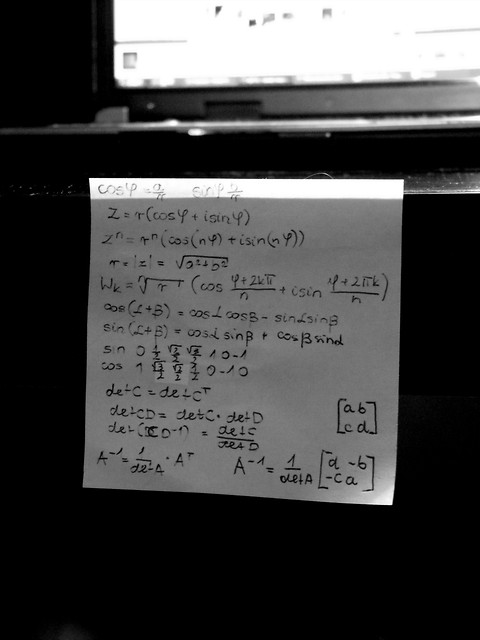 cosφ = a/r sinφ b/r
z = r(cosφ + isinφ)
zⁿ = rⁿ(cos(nφ) + isin(nφ))
r = |z| = √(a²+b²)
Wk = ⁿ√r (cos (φ+2kπ)/n + isin (φ+2πk)/n)
cos(α+β) = cosα cosβ - sinα sinβ
sin(α+β) = cosα sinβ + cosβ sinα
sin 0 1/2 √2/2 √3/2 1 0 -1
cos 1 √3/2 √2/2 1/2 0 -1 0
detC = detCᵀ
detCD = detC · detD
det(CD⁻¹) = detC/detD
[a b
c d]
A⁻¹ = 1/detA · Aᵀ A⁻¹ = 1/detA [d -b
-c a]